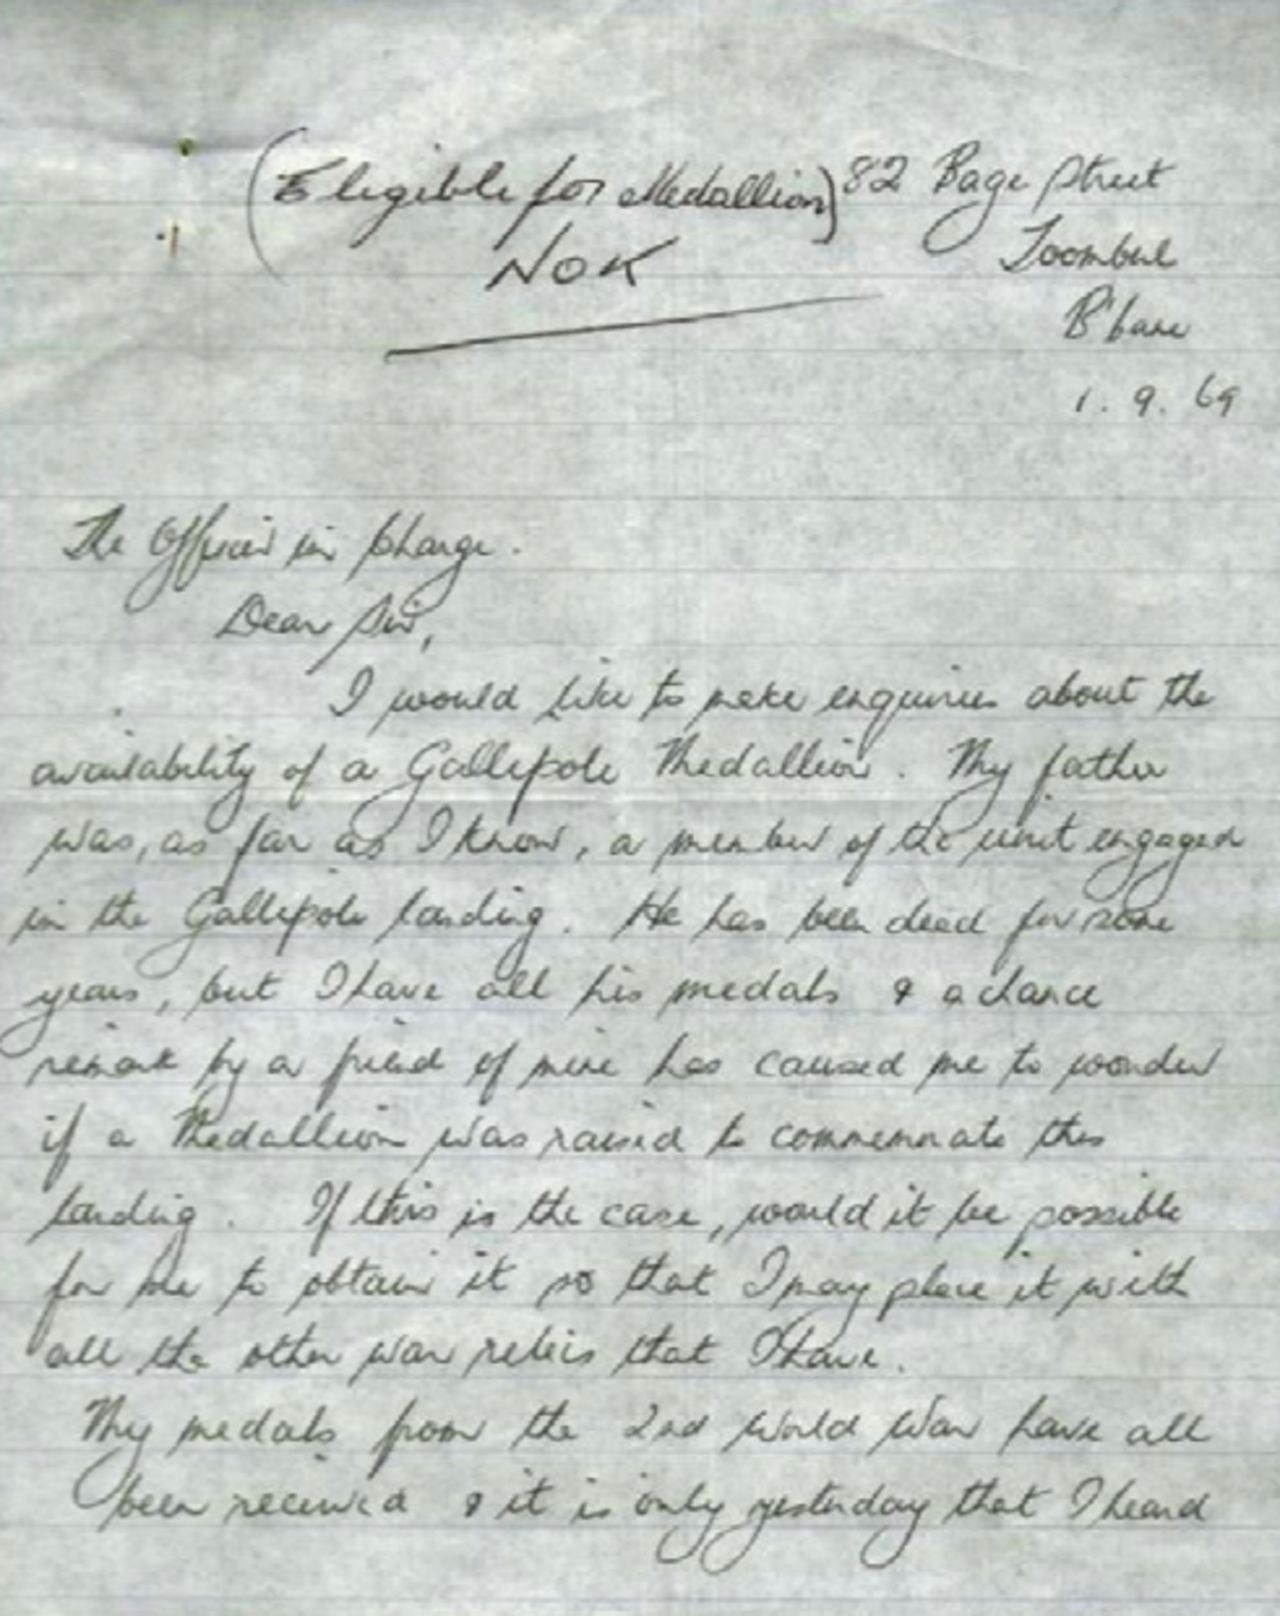 (Eligible for Medallion) 82 Bage Street
NOK
Toombul
B'bane
1. 9. 69
The Officer in Charge.
Dear Sir,
I would like to make enquiries about the
availability of a Gallipole Medallion. My father
was, as far as I know, a member of the unit engaged
in the Gallipole landing. He has been dead for some
years, but I have all his medals & a chance
remark by a friend of mine has caused me to wonder
if a Medallion was raised to commemorate this
landing. If this is the case, would it be possible
for me to obtain it so that I may place it with
all the other war relics that I have.
My medals from the 2nd World War have all
been received & it is only yesterday that I heard